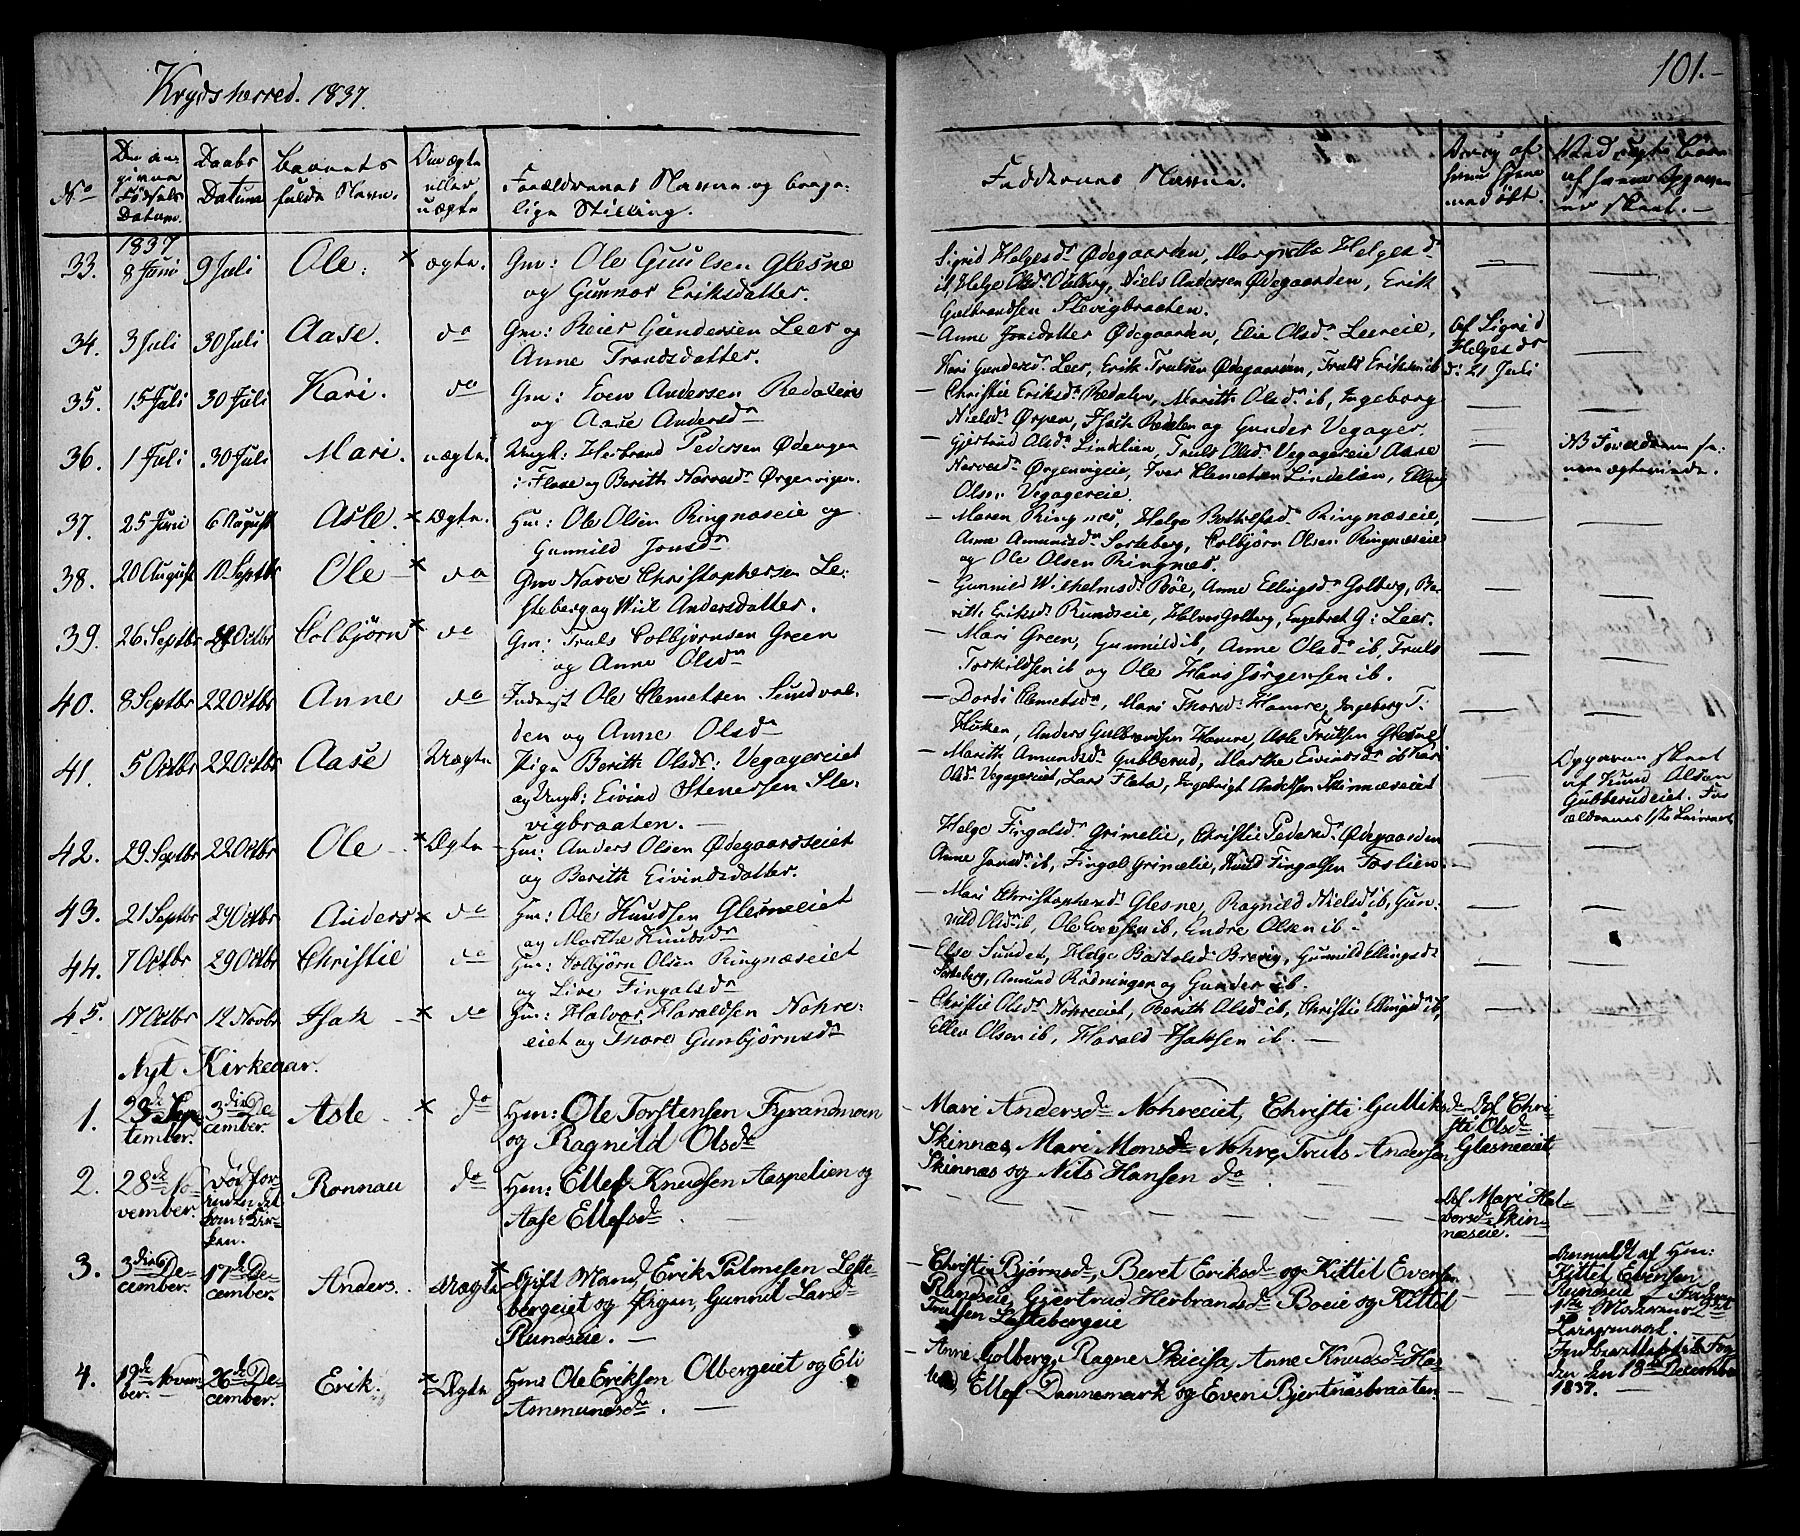 Krydsherred. 1837.
101.-
No
Datum.
Daabs
Datum
Barnets
fulde Navn.
Om ægte
eller
uægte
Forældrenes Navne og borger-
lige Stilling.
Faddernes Navne.
1837
33. 8 Juni 9 Juli Ole. × ægte. Gm: Ole Guulsen Glesne
og Gunnor Eriksdatter.
Sigrid Helgesdr Ødegaarden, Margrethe Helgesdr
ib, Helge Olsdr Olberg, Niels Andersen Ødegaarden, Erik
Gulbrandsen Slevigbraaten.
34. 3 Juli 30 Juli Aase. do Gm: Reier Gundersen Leer og
Anne Trondsdatter.
– Anne Jonsdatter Ødegaarden, Elie Olsdr Leereie,
Kari Gundersdr Leer, Erik Trulsen Ødegaarden, Truls Eriksen ib
Af Sigrid
Helgesdr
d: 21 Juli
35. 15 Juli 30 Juli Kari. do Gm: Even Andersen Redalen
og Aase Andersdr
– Christie Eriksdr Redalen, Marith Olsdr ib, Ingeborg
Nielsdr Ørpen, Isack Redalen og Gunder Vegager.
36. 1 Juli 30 Juli Mari. uægte. Ungk: Herbrand Pedersen Ødengen
i Flaae og Berith Narvesdr Ørgenvigen.
– Gjertrud Olsdr Lindelien, Truls Olsen Vegagereie Aase
Narvesdr Ørgenvigeie, Iver Clemetsen Lindelien, Elling
Olsen Vegagereie.
NB Forældrene se-
nere ægteviede.
37. 25 Juni 6 August Asle. × Ægte. Hm: Ole Olsen Ringnæseie og
Gunnild Jonsdr
– Maren Ringnæs, Helge Bottolfsdr Ringnæseie,
Anne Amundsdr Sorteberg, Colbjørn Olsen Ringnæseie
og Ole Olsen Ringnæs.
38. 20 August 10 Septbr Ole × do Gm Narve Christophersen Le-
steberg og Wiil Andersdatter.
– Gunnild Wilhelmsdr Bøe, Anne Ellingsdr Golberg, Be-
rith Eriksdr Rundseie, Halvor Golberg, Engebret G: Leer.
39. 26 Septbr 22 Octbr Colbjørn × do Gm: Truls Colbjørnsen Green
og Anne Olsdr
– Mari Green, Gunnild ib, Anne Olsdr ib, Truls
Torkildsen ib og Ole Hans Jørgensen ib.
40. 8 Septbr 22 Octbr Anne do Inderst Ole Clemetsen Sundvol-
den og Anne Olsdr
– Dordi Clemetsdr, Mari Thorsdr Hamre, Ingeborg T.
Høken, Anders Gulbrandsen Hamre, Asle Trulsen Glesne
41. 5 Octbr 22 Octbr Aase Uægte Pige Berith Olsdr: Vegagereiet
og Ungk: Eivind Stenersen Sle-
vigbraaten. –
– Marith Amundsdr Gubberud, Marthe Eivindsdr ib Kari
Olsdr Vegagereiet, Lars Flata, Ingebrigt Andersen Skinnæseiet
Opgaven skeet
af Knud Olsen
Gubberudeiet. For-
ældrenes 1ste Leiermaal
42. 29 Septbr 22 Octbr Ole × Ægte – Hm: Anders Olsen Ødegaardseiet
og Berith Eivindsdatter.
Helge Fingalsdr Grimelie, Christie Pedersdr Ødegaarden
Anne Jansdr ib, Fingal Grimelie, Knud Fingalsen Toslien.
43. 21 Septbr 29 Octbr Anders × do Hm: Ole Knudsen Glesneeiet
og Marthe Knudsdr
– Mari Christophersdr Glesne, Ragnild Nielsdr ib, Gun-
nild Olsdr ib, Ole Evensen ib, Endre Olsen ib –
44. 7 Octbr 29 Octbr Christie do Hm: Colbjørn Olsen Ringnæseiet
og Live Fingalsdr
– Else Sundet, Helge Bartolsdr Brevig, Gunnild Ellingsdr
Sorteberg, Amund Rødningen og Gunder ib.
45. 17 Octbr 12 Novbr Isak × do Hm: Halvor Haraldsen Nohre-
eiet og Thore Gunbjørnsdr
– Christie Olsdr Nohreeiet, Berith Olsdr ib, Christie Ellingsdr ib,
Ellen Olsen ib, Harald Isaksen ib. –
Nyt Kirkeaar.
1. 23de Sep-
tember. 3die De-
cember. Asle × do Hm: Ole Torstensen Fyrandmoen
og Ragnild Olsdr
– Mari Andersdr Nohreeiet, Christi Gulliksdr
Skinnæs, Mari Monsdr Nohre, Truls Andersen
Skinnæs og Nils Hansen do
Af Chri-
sti Olsdr
Glesneeiet
2. 28de No-
vember. Død for-
inden det
kom i Kir-
ken. Ronnau do Hm: Ellef Knudsen Aaspelien og
Aase Ellefsdr. –
Af Mari Hal-
vorsdr Skin-
næseie.
3. 3die De-
cember. 17de De-
cember. Anders. Uægte × Gift Mand, Erik Palmesen Leste-
bergeiet og Pigen, Gunnil Larsdr
Rundseie. –
– Christin Bjørnsdr, Beret Eriksdr og Kittil Evensen
Rundseie, Gjertrud Herbrandsdr Boeie og Kittil
Trulsen Lestebergeie
Anmeldt af Hm:
Kittel Evensen
Rundseie. Faderens
1ste Moderens 2det
Leiermaal.
Indberettet til Fog-
den den 18de December
1837.
4. 19de Novem-
ber. – 26de De-
cember. Erik. × Ægte Hm: Ole Eriksen Olbergeiet og Eli
Ammundsdr
– Anne Golberg, Ragne Skieisa, Anne Knudsdr
Ellef Dannemark og Even Bjertnæsbraaten.